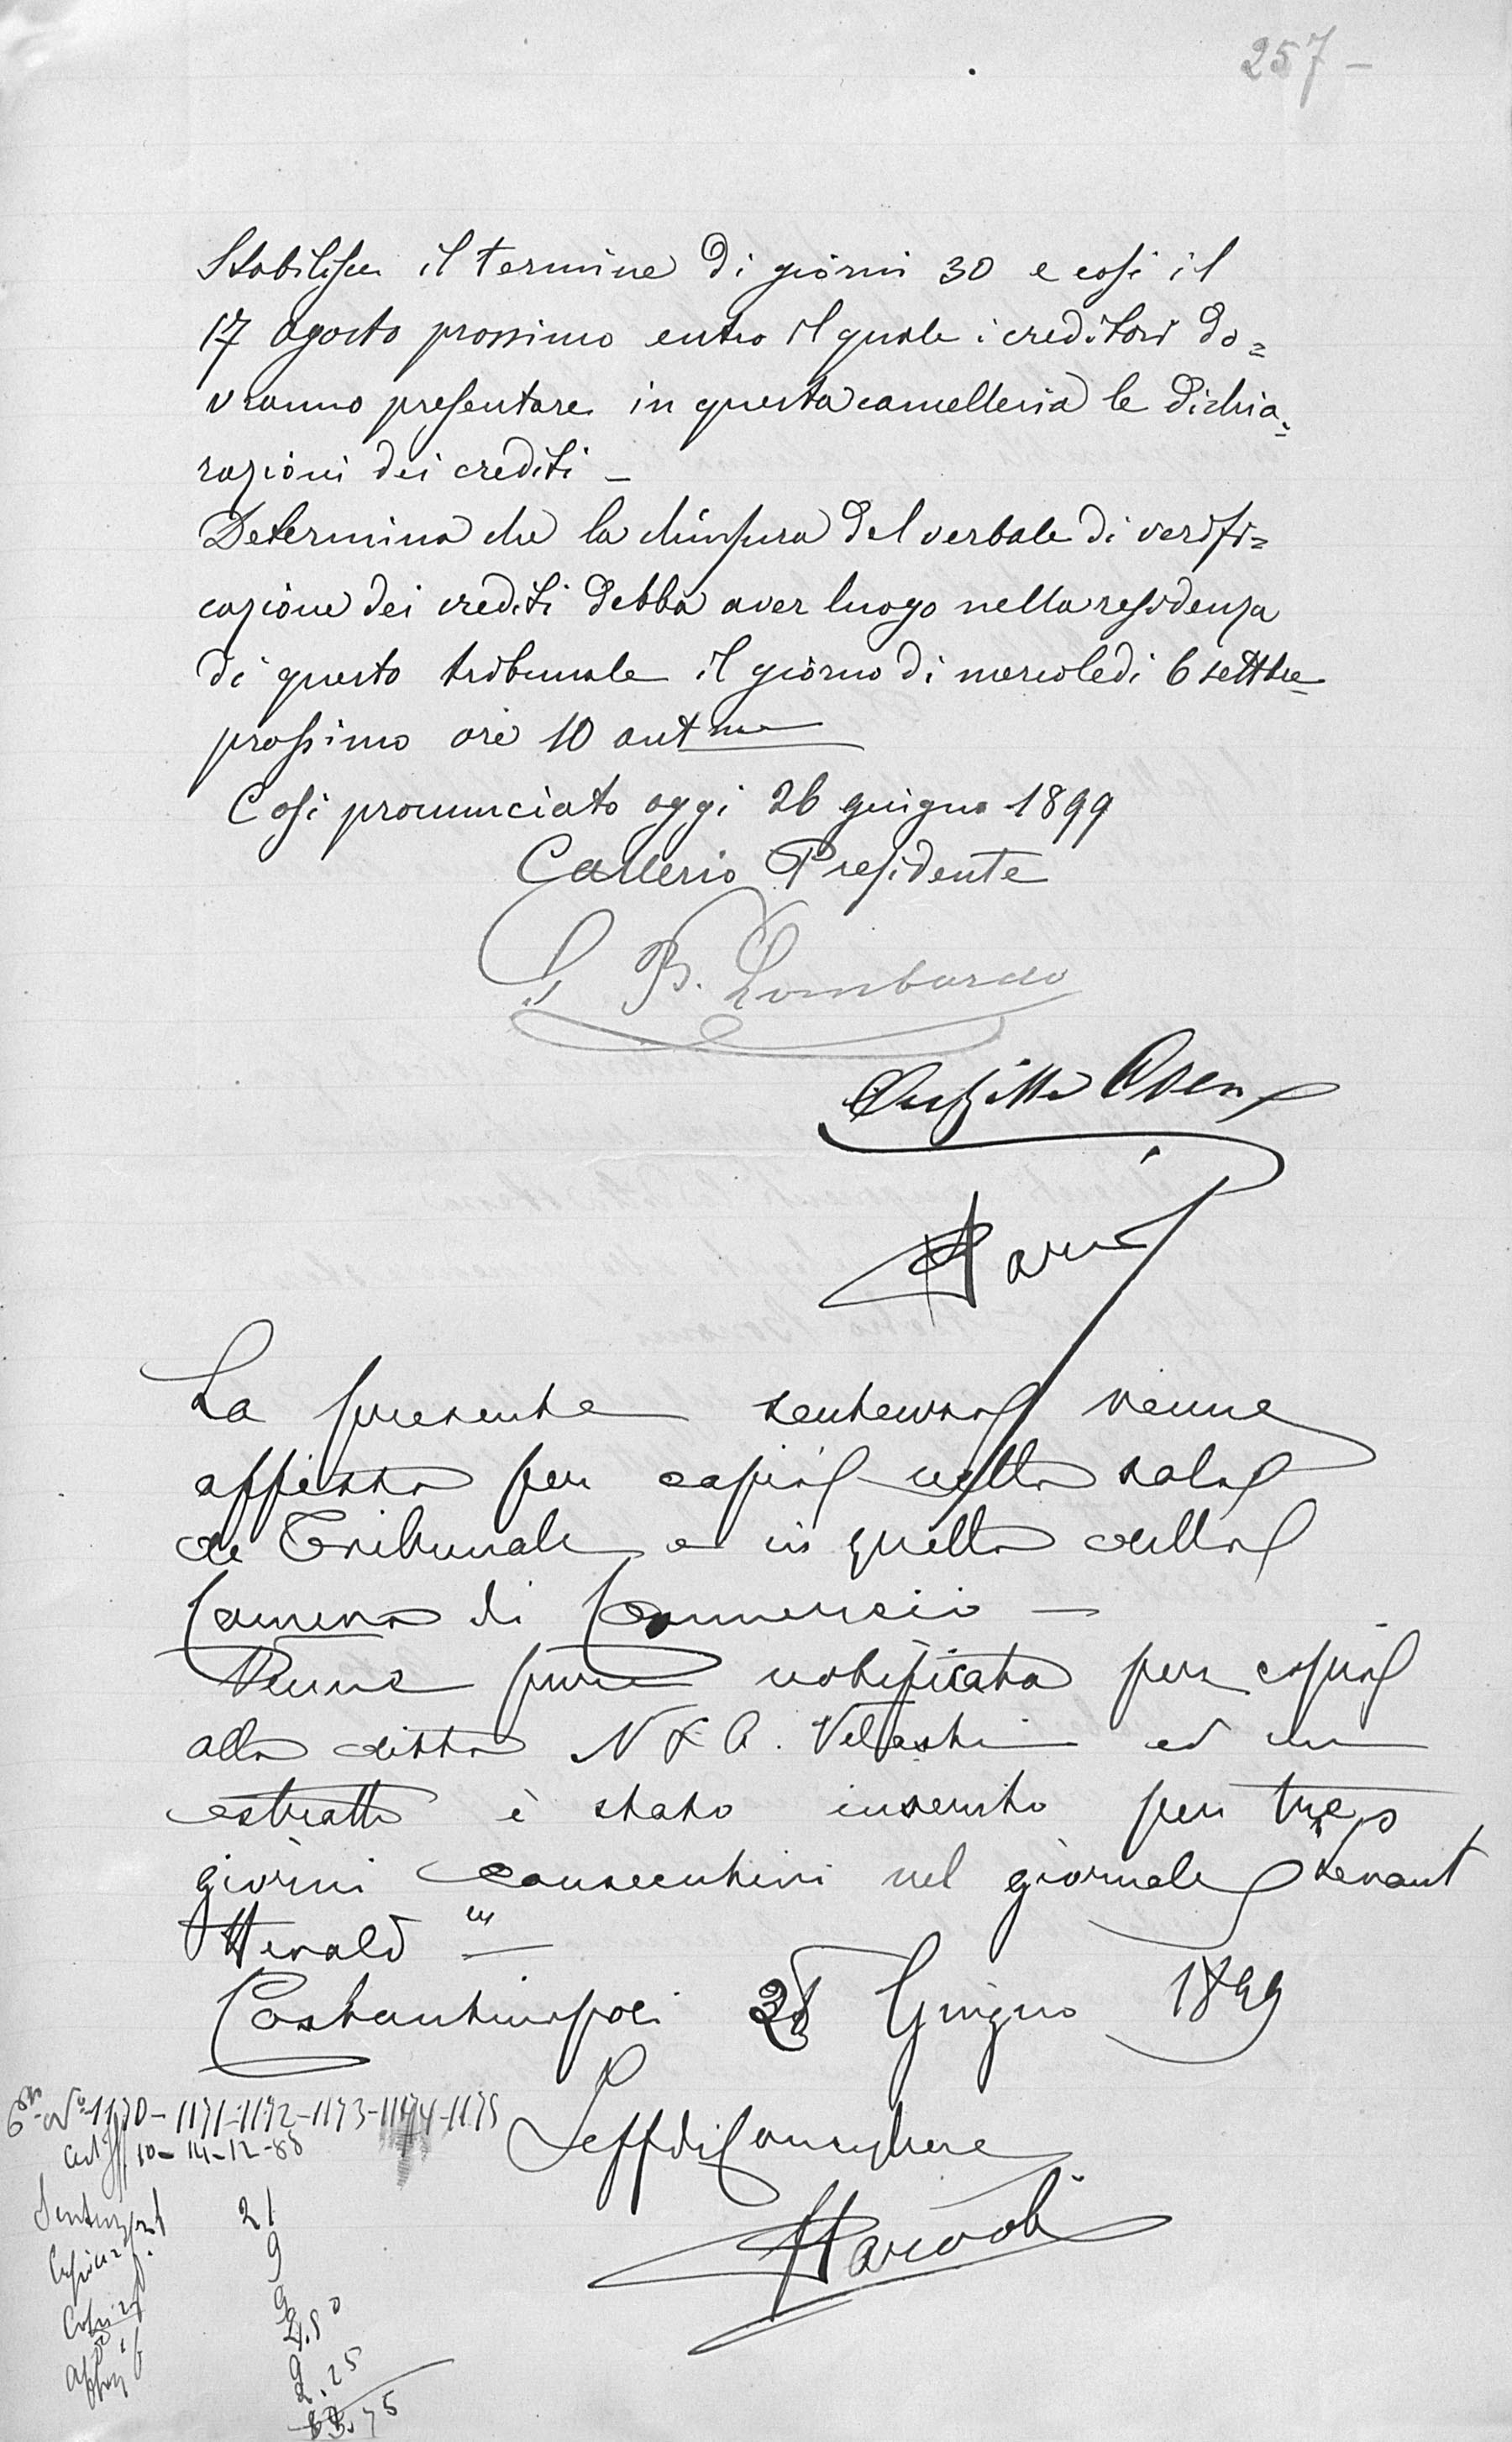 257 -
Stabilisce il termine di giorni 30 e così il
17 agosto prossimo entro il quale i creditori do=
vranno presentare in questa cancelleria le dichia=
razioni dei crediti -
Determina che la chiusura del verbale di verifi=
cazione dei crediti debba aver luogo nella residenza
di questo tribunale il giorno di mercoledi 6 settbre
prossimo ore 10 antme
Così pronunciato oggi 26 giugno 1899
Presidente
G B. Lombardo
La presente sentenza venne
affissa per copia nella sala
de Tribunale e in quella della
Camera di Commercio -
Venne pure notificata per copia
alla ditta N & A. Velasti ed un
estratto è stato inserito per tre
giorni consecutivi nel giornale Levant
Herald "
Costantinopoli 28 Giugno 1899
No 1170 - 1171 - 1172 - 1173 - 1174 - 1175
10 - 14 - 12 - 88
21
9
9
4.50
9
2.25